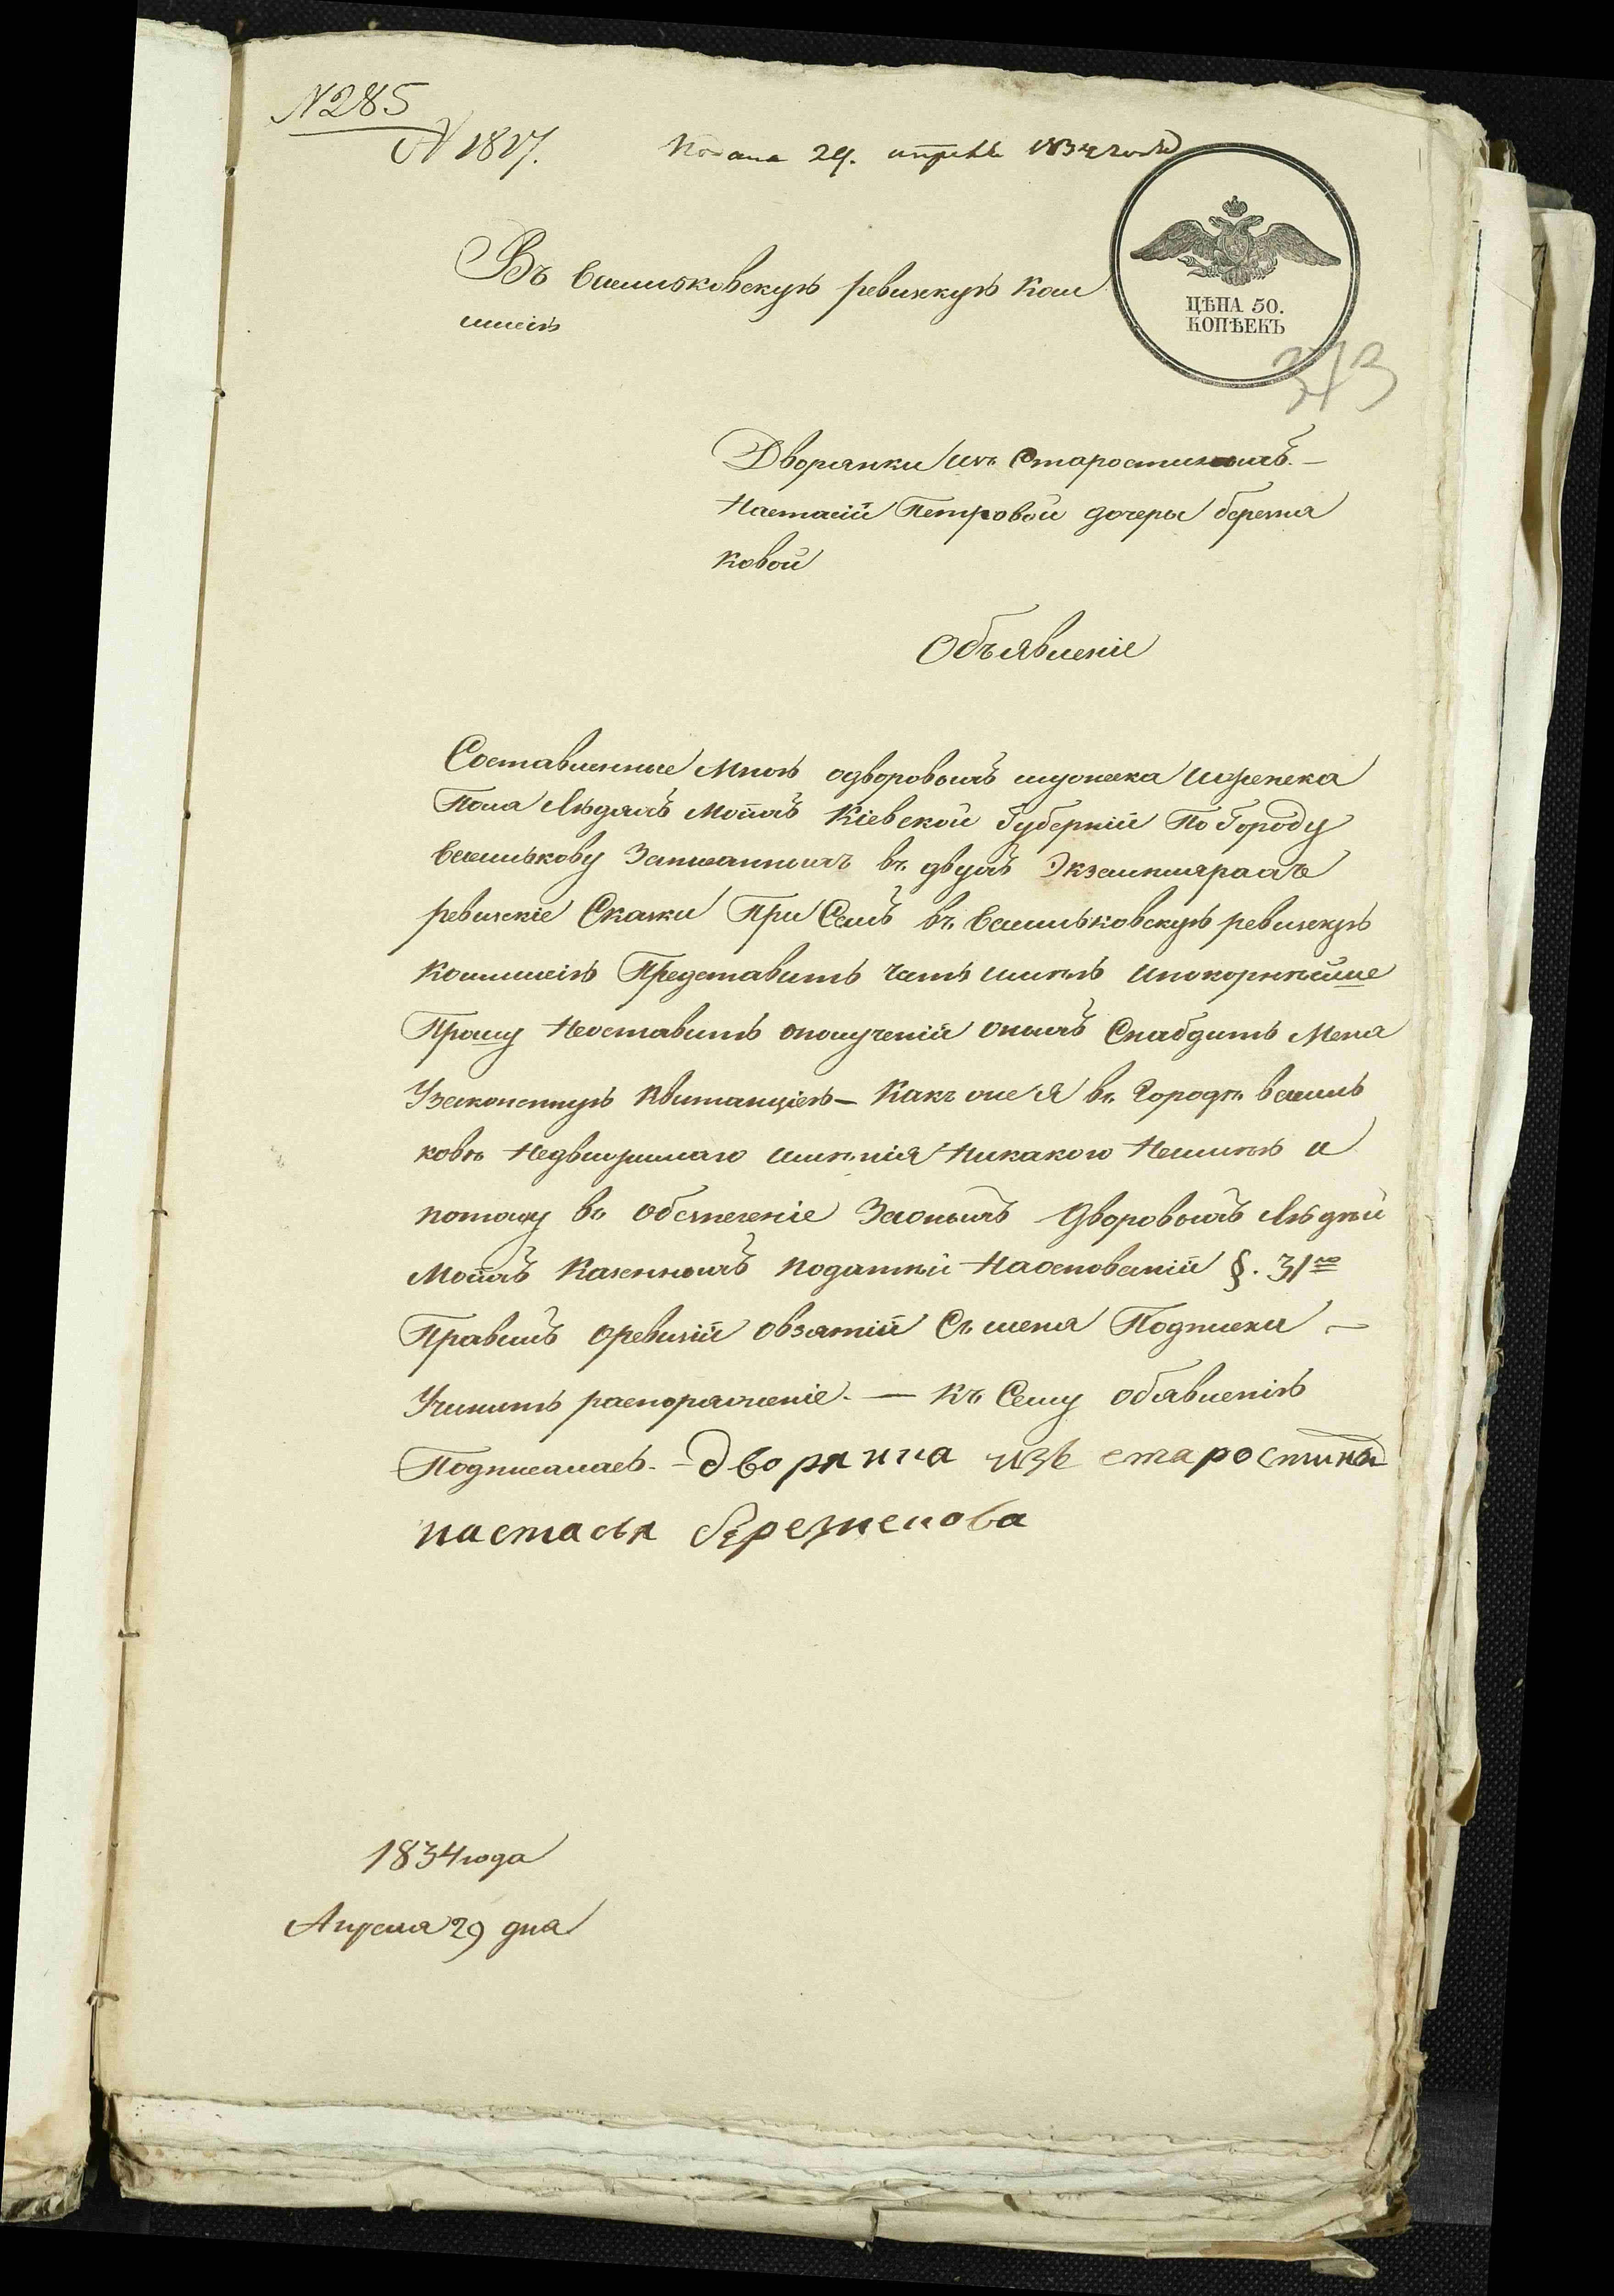 N 285
N 1817.
Подана 29. апреля 1834 года
ЦѢНА 50.
КОПѢЕКЪ
373
Въ Васильковскую ревизкую Ком
мисію
Дворянки изъ Старостиныхъ.—
Настасіи Петровой дочеры Бережа
ковой
Объявленіе
Составленные Мною одворовыхъ мужеска ииженска
Пола Людяхъ Моихъ Кіевской Губерніи По Городу
Василькову Записанныхъ въ двухъ Экземплярахъ
ревизкіе Скаски При Семъ въ Васильковскую ревизкую
Коммисію Представить честь имѣю ипокорнейше
Прошу Неоставить ополученіи оныхъ Снабдить Меня
Узаконенную Квитанціею— Какъ же я въ Городѣ Василь
ковѣ Недвижимаго имѣнія Никакого Неимѣю и
потому въ обезпеченіе Заоныхъ Дворовыхъ Людѣй
Моихъ Казенныхъ податѣй Наоснованіи §. 31го
Правилъ оревизіи овзятіи Съ меня Подписки —
Учинить распоряженіе. — Къ Сему обявленію
Подписалась. — дворянка изъ старостиных
настася Бережекова
1834 года
Апреля 29 дня